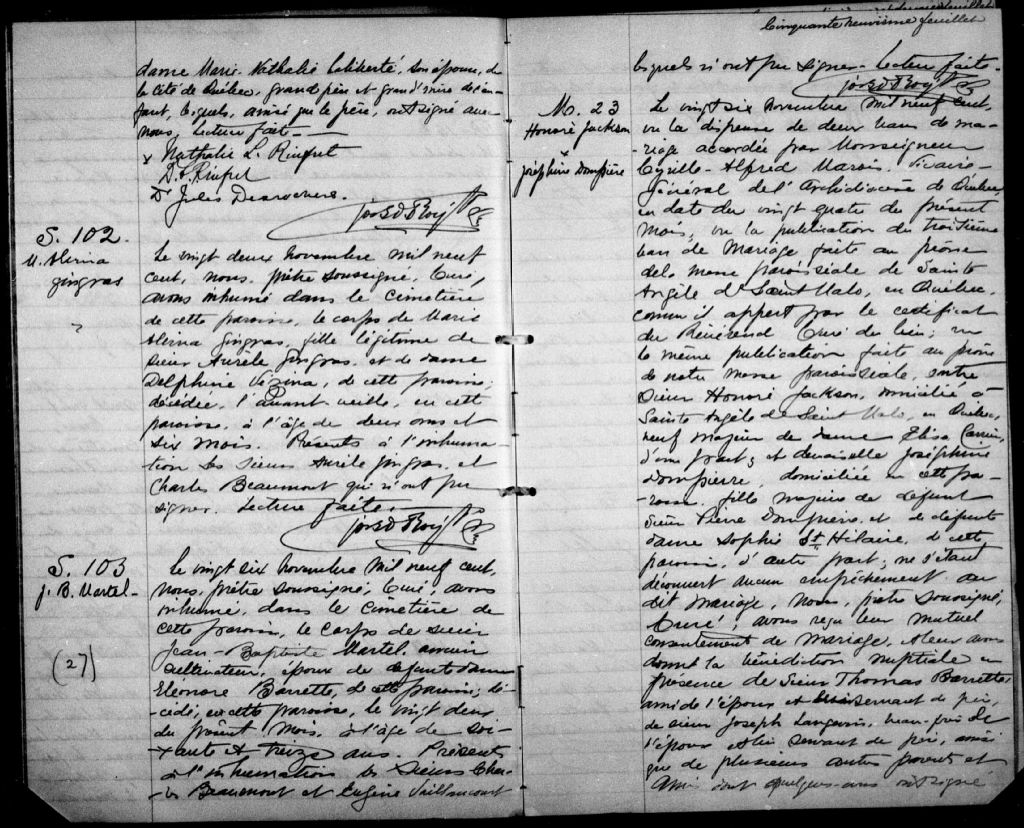 dame Marie-Nathalie Laliberté, son épouse, de
la cité de Québec, grand père et grand'mère de l'en-
fant, lesquels, ainsi que le père, ont signé avec
nous, Lecture faite.
x Nathalie L. Rinfret
D. Rinfret
Dr Jules Desrochers.
Jos. D. Roy Ptre
S. 102.
M. Alerna
gingras
Le vingt deux novembre mil neuf
cent, nous, prêtre soussigné, Curé,
avons inhumé dans le cimetière
de cette paroisse, le corps de Marie
Alerna Gingras, fille légitime de
Sieur Aurèle Gingras, et de dame
Delphine Vézina, de cette paroisse,
décédée, l'avant-veille, en cette
paroisse, à l'âge de deux ans et
six mois. Présents à l'inhuma-
tion les Sieurs Aurèle Gingras, et
Charles Beaumont qui n'ont pu
signer. Lecture faite.
Jos. D. Roy Ptre
S. 103
J. B. Martel
(27)
Le vingt six novembre mil neuf cent,
nous, prêtre soussigné, Curé, avons
inhumé, dans le cimetière de
cette paroisse, le corps de sieur
Jean-Baptiste Martel, ancien
cultivateur, époux de défunte dame
Eléonore Barrette, de cette paroisse, dé-
cédé, en cette paroisse, le vingt deux
du présent mois, à l'âge de soi-
xante et treize ans. Présents
à l'inhumation les Sieurs Char-
les Beaumont et Eugène Vaillancourt
Cinquante neuvième feuillet
lesquels n'ont pu signer. Lecture faite.
Jos. D. Roy Ptre
M. 23
Honoré Jackson
x
Joséphine Dompierre
Le vingt six novembre mil neuf cent,
vu la dispense de deux bans de ma-
riage accordée par Monseigneur
Cyrille-Alfred Marois, Vicaire-
Général de l'Archidiocèse de Québec,
en date du vingt quatre du présent
mois, vu la publication du troisième
ban de Mariage faite au prône
de la messe paroissiale de Sainte
Angèle de Saint Malo, en Québec,
comme il appert par le certificat
du Révérend Curé du lieu; vu
la même publication faite au prône
de notre messe paroissiale, entre
Sieur Honoré Jackson, domicilié à
Sainte Angèle de Saint Malo, en Québec,
majeur de dame Elisa
d'une part; et demoiselle Joséphine
Dompierre, domiciliée en cette pa-
roisse, fille majeure de défunt
Sieur Pierre Dompierre, et de défunte
dame Sophie St Hilaire, de cette
paroisse, d'autre part; ne s'étant
découvert aucun empêchement au
dit mariage, Nous, prêtre soussigné,
Curé, avons reçu leur mutuel
consentement de mariage, et leur avons
donné la bénédiction nuptiale en
présence de Sieur Thomas Barrette
ami de l'époux et lui servant de père,
de sieur Joseph Langevin, beau-frère de
l'épouse et lui servant de père, ainsi
que de plusieurs autres parents et
amis dont quelques-uns ont signé